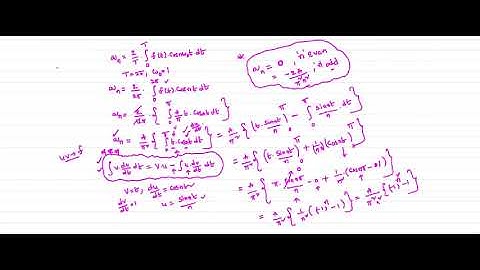 aₙ = 2/T ∫₀ᵀ f(t) Cos nω₀t dt
T = 2π, ω₀ = 1
aₙ = 2/2π ∫₀^2π f(t) Cos nt dt
aₙ = 2/2π { ∫₀^π A/π t · Cos nt dt }
aₙ = A/π² { ∫₀^π t · Cos nt dt }
∫ v · du/dt dt = v·u − ∫ u · dv/dt dt
v = t, du/dt = cos nt
dv/dt = 1 u = Sin nt/n
aₙ = 0, 'n' even
= −2A/π²n², 'n' odd
= A/π² { (t · Sin nt/n)₀^π − ∫₀^π Sin nt/n · dt }
= A/π² { (t · Sin nt/n)₀^π + 1/n² (Cos nt)₀^π }
= A/π² { π · Sin nπ/n − 0 + 1/n² (Cos nπ − Cos 0) }
= A/π² { 1/n² ((−1)ⁿ − 1) } = A/π²n² { (−1)ⁿ − 1 }